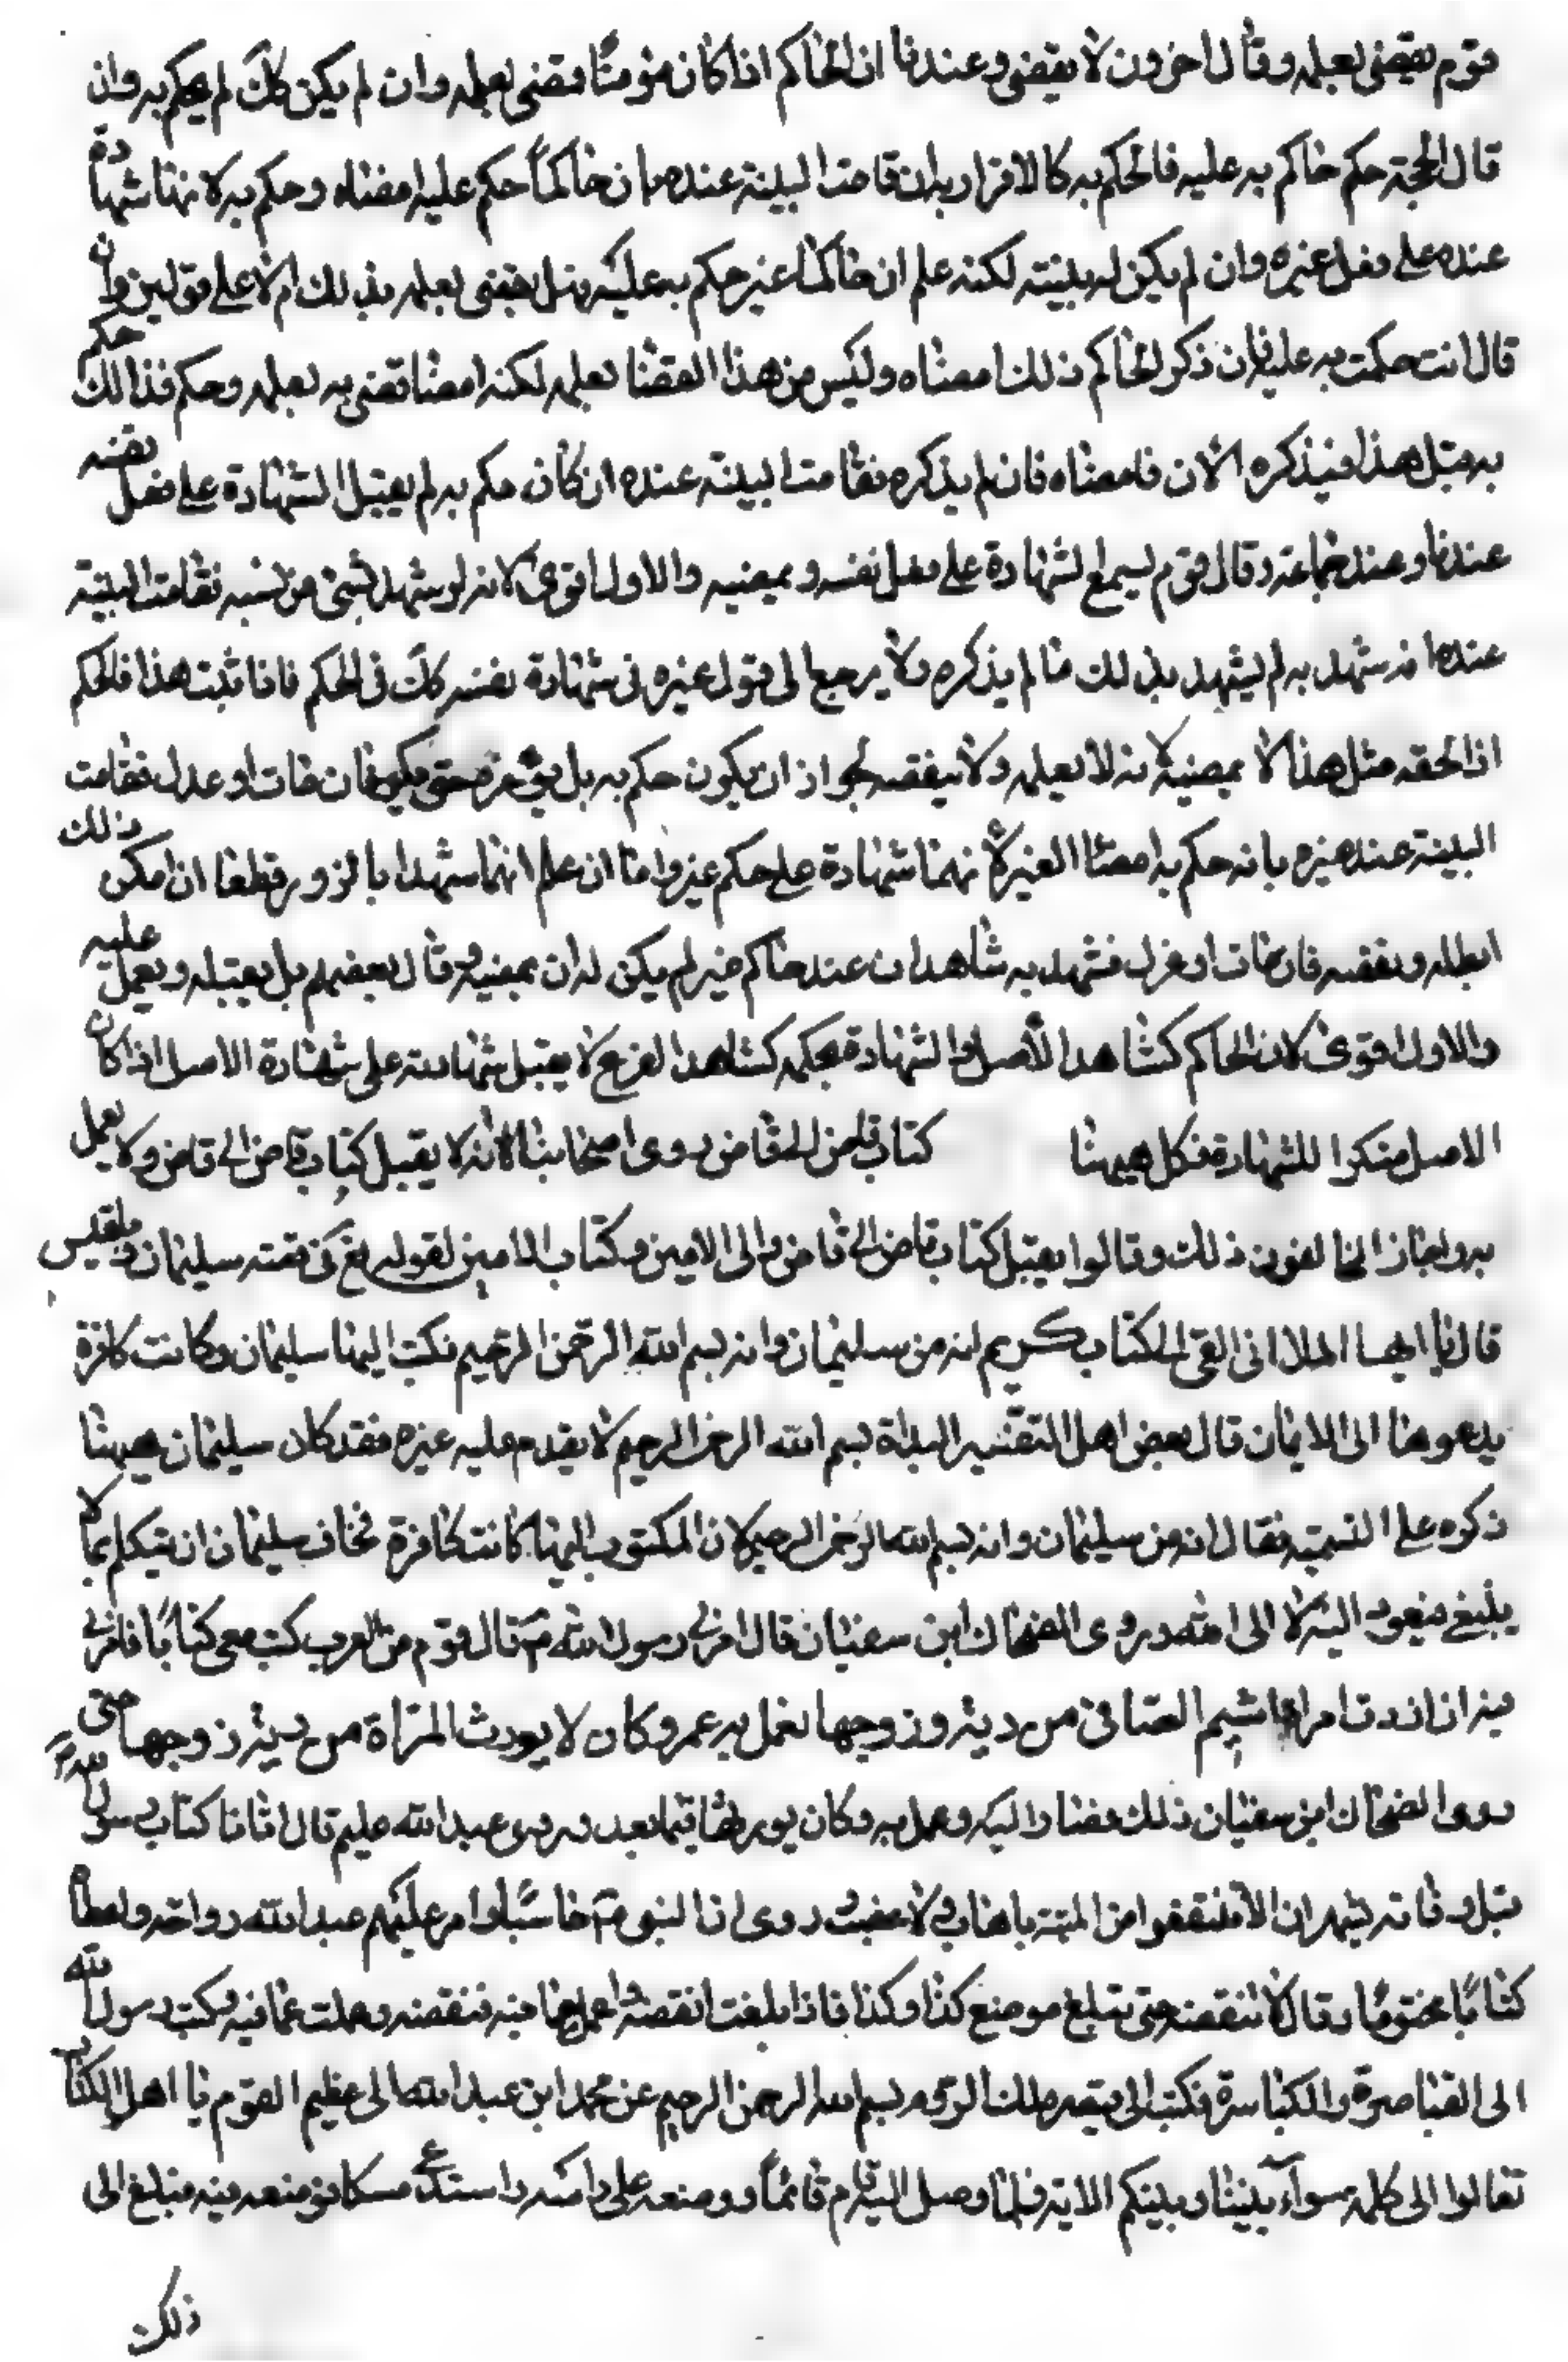 قوم يقضى بعلمه وقال اخرون لا يقضى وعندنا ان الحاكم اذا كان مؤمنًا قضى بعلمه وان لم يكن كك لم يحكم به وان
قال الحجة حكم حاكم به عليه فالحكم به كالاقرار به ان قامت البينة عنده بان حاكمًا حكم عليه امضاه وحكم به لانها شهادة
عنده على فعل غيره وان لم يكن له بينته لكنه علم ان حاكما غير حكم به عليه فهل يقضى بعلمه بذلك ام لا على قولين وان
قال انت حكمت به عليه فان ذكر الحاكم ذلك امضاه وليس من هذا القضا بعلمه لكنه امضا قضى به بعلمه وحكم فذالك حكم
به قبل هذا فيذكره الان فامضاه فان لم يذكره فقامت البينة عنده ان كان حكم به لم يقبل الشهادة على فعل نفسه
عندنا وعند جماعة وقال قوم يسمع الشهادة على فعل نفسه ويمضيه والاول اقوى لانه لو شهد بشئ من نسبه فقامت البينة
عنده انه شهد به لم يشهد بذلك ما لم يذكره ولا يرجع الى قول غيره فى شهادة نفسه كك فى الحكم فاذا ثبت هذا فالحكم
اذا لحقه مثل هذا لا يمضيه لانه لا يعلمه ولا ينقضه لجواز ان يكون حكم به بل يؤخره حتى فان مات او عدل فقامت
البينة عند غيره بانه حكم به امضا الغير لانهما شهادة على حكم غيره واما ان علم انهما شهدا بالزور قطعا ان امكن ذلك
ابطله ونقضه فان مات او عزل فشهد به شاهدان عند حاكم غيره لم يكن له ان يمضيه وقال بعضهم بل يقبله ويعمل عليه
والاول اقوى لان الحاكم كشاهد الاصل والشهادة بحكمه كشاهد الفرع لا يقبل شهادته على شهادة الاصل اذا كان
الاصل منكرا للشهادة فكل هيهنا كتاب قاض الى قاض روى اصحابنا انه لا يقبل كتاب قاض الى قاض ولا يعمل
به واجاز المخالفون ذلك وقالوا يقبل كتاب قاض الى قاض والى الامين وكتاب الامين لقوله تع فى قصة سليمان وبلقيس
قال يا ايها الملا انى القى الى كتاب كريم انه من سليمان وانه بسم الله الرحمن الرحيم فكتب اليها سليمان وكانت كافرة
يدعوها الى الايمان قال بعض اهل التفسير البداة بسم الله الرحمن الرحيم لا يقدم عليه غيره فقد كان سليمان هيهنا
ذكره على التسمية فقال انه من سليمان وانه بسم الله الرحمن الرحيم لان المكتوب اليها كانت كافرة فخاف سليمان ان يتكلم بما لا
ينبغى فيعود اليه لا الى الله وروى الضحاك ابن سفيان قال امرنى رسول الله ص قال قوم من العرب كتب معى كتابًا فامرنى
فيه ان اورث امراة اشيم الضبابى من دية زوجها فعمل به عمر وكان لا يورث المراة من دية زوجها حتى
روى الضحاك ابن سفيان ذلك فصار اليه وعمل به وكان يورثها فيما بعد وروى عبد الله عليم قال اتانا كتاب رسول الله ص
قبل وفاته بشهر ان لا تنتفعوا من الميتة باهاب ولا عصب وروى ان النبى ص جا سبا وامر عليهم عبد الله رواحة واعطاه
كتابًا مختومًا وقال لا تنقضه حتى تبلغ موضع كذا وكذا فاذا بلغت انقضه واعمل بما فيه فنقضه وعملت بما فيه وكتب رسول الله
الى القياصرة والكياسرة فكتب الى قيصر ملك الروم بسم الله الرحمن الرحيم عن محمد ابن عبد الله الى عظيم القوم يا اهل الكتاب
تعالوا الى كلمة سواء بيننا وبينكم الاية فلما وصل اليه قام قائمًا ووضعه على راسه واستدعى مسكا فوضعه فيه فبلغ الى
ذلك